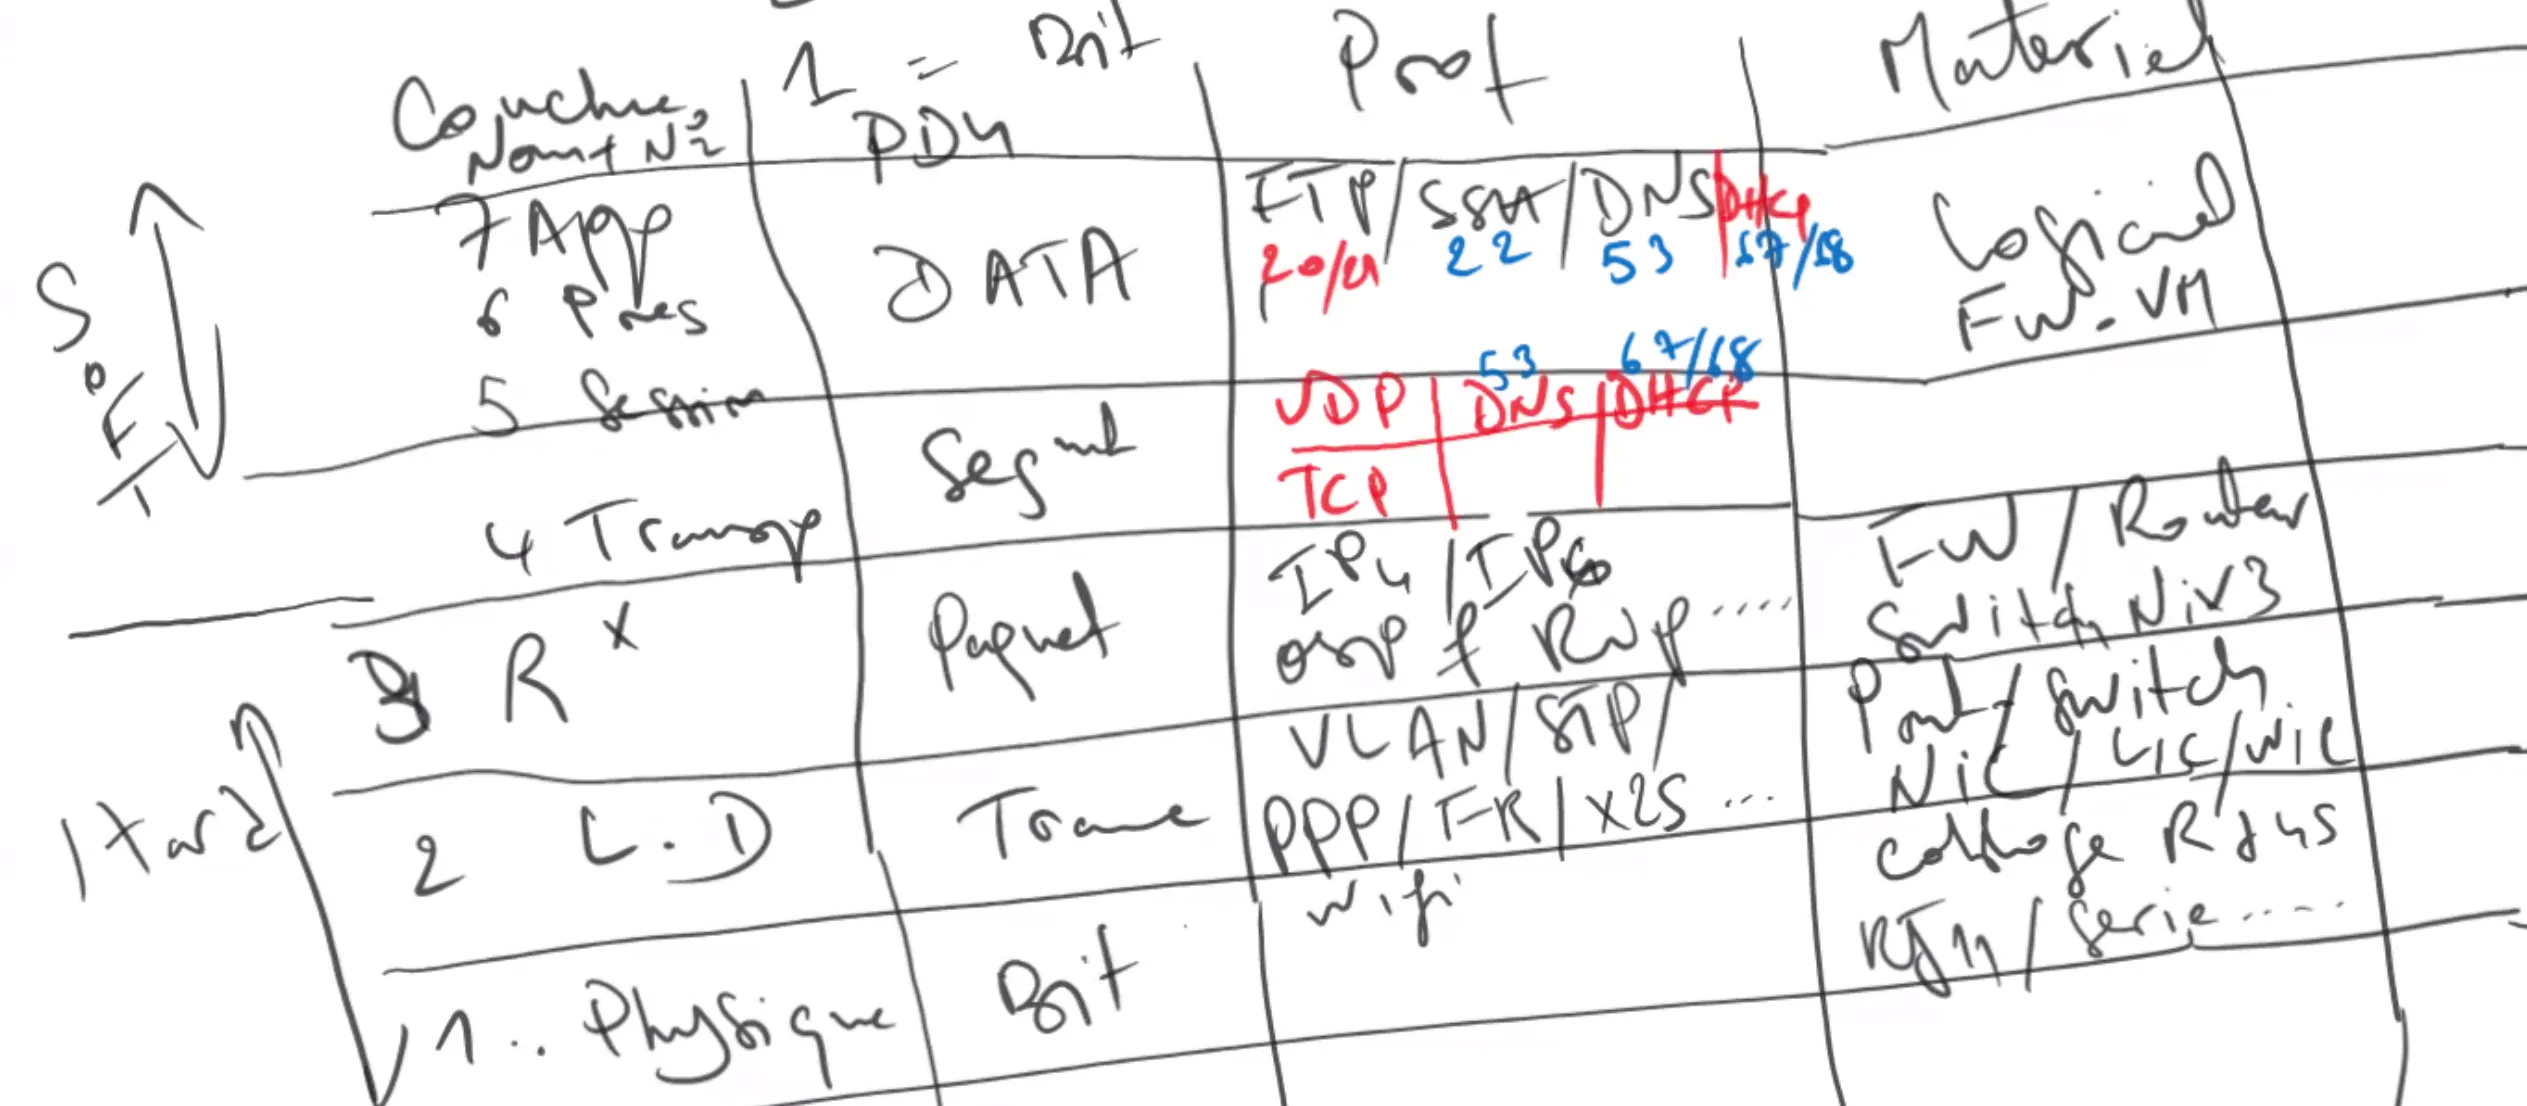 1 = Bit
Couche Nom + N° PDU Prot Materiel
7 App
6 Pres
5 Session
DATA
FTP / SSH / DNS DHCP
20/21 22 53 67/68
Logiciel
FW. VM
SOFT
4 Transp
Segmt
53 67/68
UDP DNS DHCP
TCP
3 RX
Paquet
IP4 / IP6
OSPF Rip .....
FW / Router
Switch Niv3
Hard
2 L.D
Trame
VLAN / STP /
PPP / FR / X25 ...
Wifi
Pont / Switch
NIC / LIC / WIC
1.. Physique
Bit
Cablage RJ45
RJ11 / Serie .....